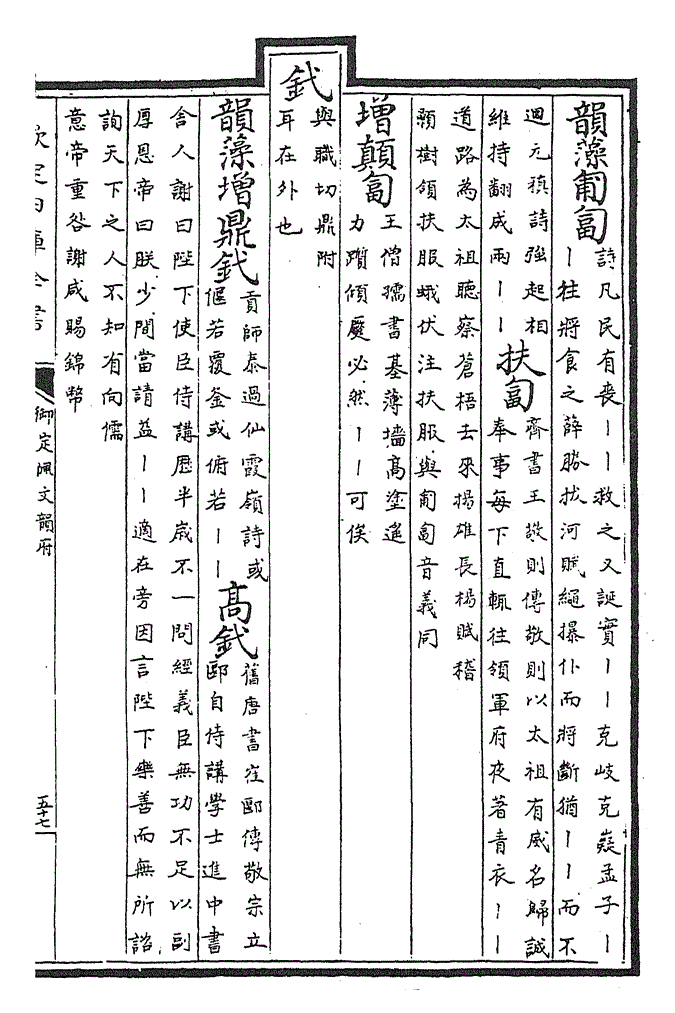 韻藻匍匐
詩凡民有喪丨丨救之又誕實丨丨克岐克嶷孟子丨
丨往將食之薛勝拔河賦繩㩧仆而將斷猶丨丨而不
迴元稹詩強起相
維持翻成兩丨丨
扶匐
齊書王敬則傳敬則以太祖有威名歸誠
奉事每下直輒往領軍府夜著青衣丨丨
道路為太祖聽察蒼梧去來揚雄長楊賦稽
顙樹頷扶服蛾伏注扶服與匍匐音義同
增顛匐
王僧孺書基薄墻高塗遥
力躓傾蹷必然丨丨可俟
釴
與職切鼎附
耳在外也
韻藻增鼎釴
貢師泰過仙霞嶺詩或
偃若覆釜或俯若丨丨
高釴
舊唐書崔郾傳敬宗立
郾自侍講學士進中書
舍人謝曰陛下使臣侍講歷半歲不一問經義臣無功不足以副
厚恩帝曰朕少間當請益丨丨適在旁因言陛下樂善而無所諮
詢天下之人不知有向儒
意帝重咎謝咸賜錦幣
欽定四庫全書
御定佩文韻府
五十七